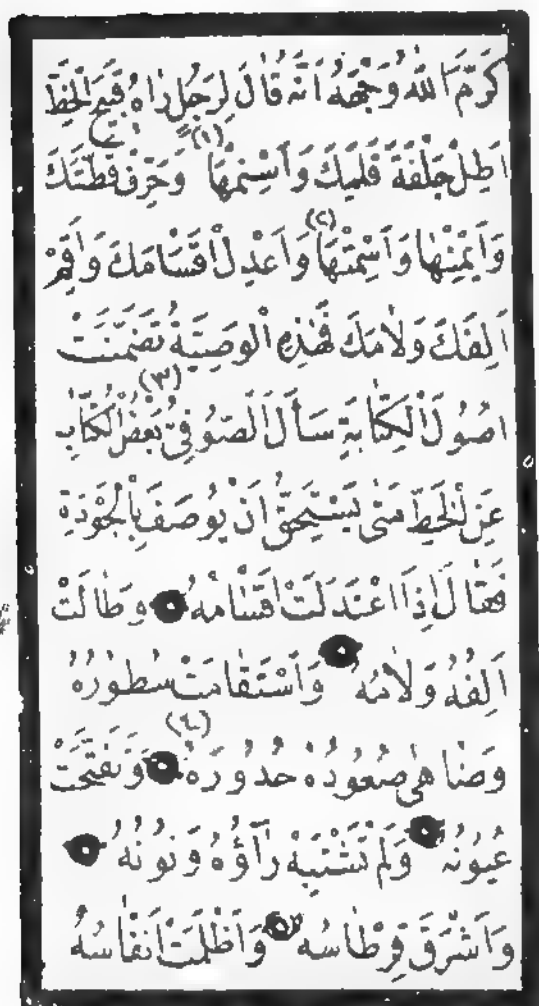 كَرَّمَ اَللهُ وَجْهَهُ اَنَّهُ قَالَ لِرَجُلٍ رَاٰهُ قَبِيحَ الْخَطِّ
اَطِلْ جَلْفَةَ قَلَمِكَ وَاَسْمِنْهَا (١) وَحَرِّفْ قَطَّتَكَ
وَاَيْمِنْهَا وَاَسْمِتْهَا (٢) وَاَعْدِلْ اَقْسَامَكَ وَاَقِمْ
اَلِفَكَ وَلَامَكَ فَهٰذِهِ الْوَصِيَّةُ تَضَمَّنَتْ
اُصُولَ الْكِتَابَةِ (٣) سَأَلَ الصُّوفِيُّ بَعْضُ الْكُتَّابِ
عَنِ الْخَطِّ مَتٰى يَسْتَحِقُّ اَنْ يُوصَفَ بِالْجَوْدَةِ
فَقَالَ اِذَا اعْتَدَلَتْ اَقْسَامُهُ وَطَالَتْ
اَلِفُهُ وَلَامُهُ وَاَسْتَقَامَتْ سُطُورُهُ
وَضَاهٰى صُعُودُهُ حُدُورَهُ (٤) وَتَفَتَّحَتْ
عُيُونُهُ وَلَمْ تَشْتَبِهْ رَآؤُهُ وَنُونُهُ
وَاَشْرَقَ قِرْطَاسُهُ وَاَظْلَمَتْ اَنْقَاسُهُ